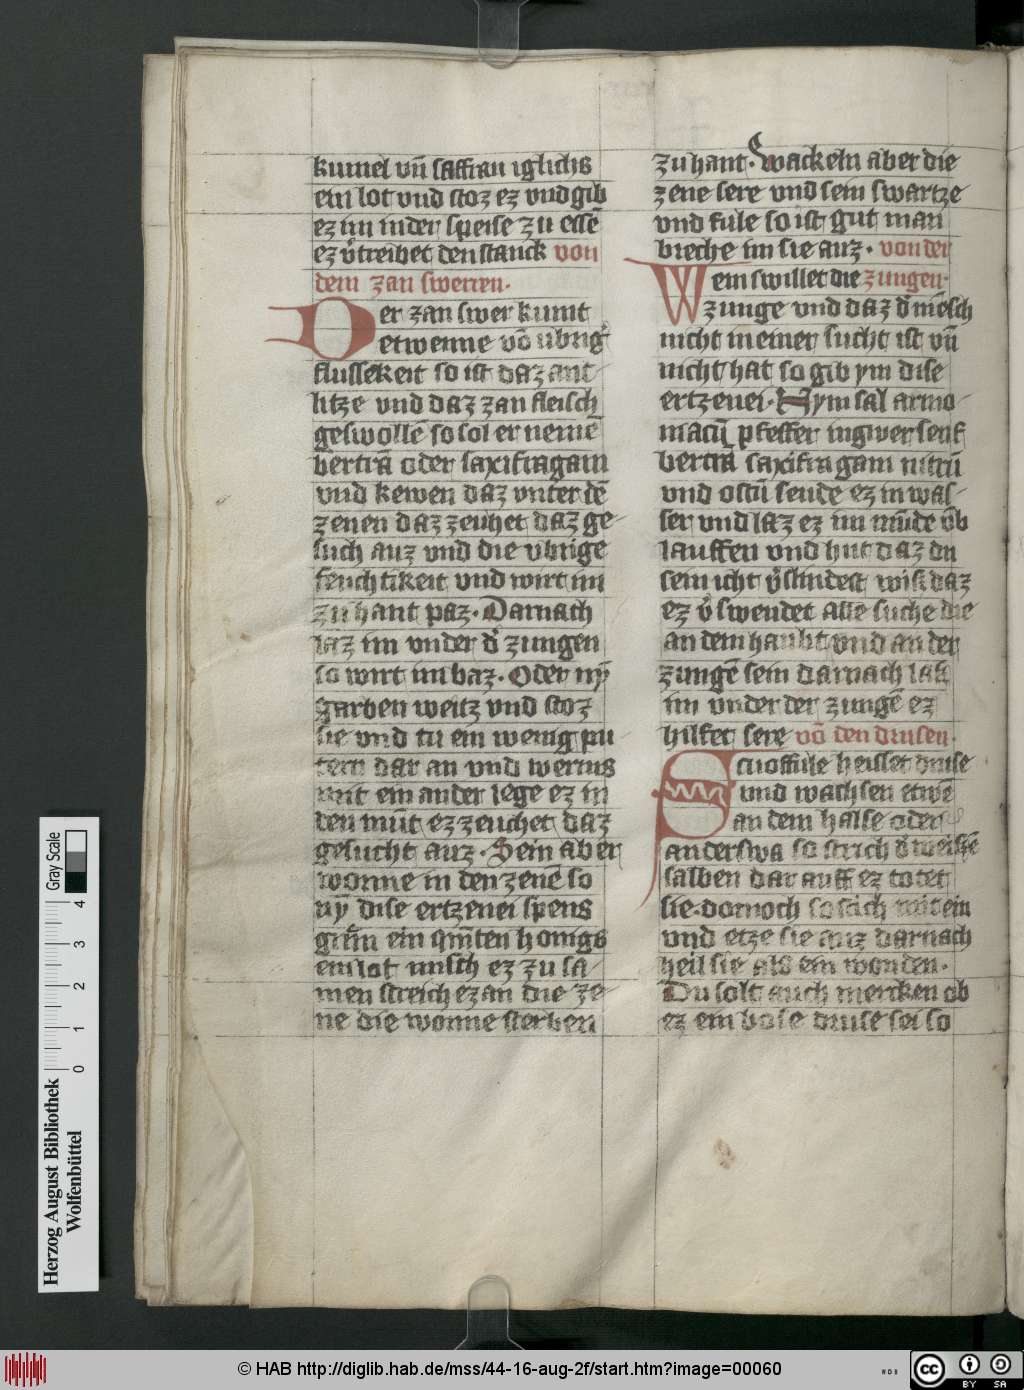 kumel vn̄ saffran iglichs
ein lot vnd stoz ez vnd gib
ez im in der speise zu essē
ez v̓treibet den stanck von
dem zan swerren·
Der zan swer kumt
etwenne vō ubrig̓
flussekeit so ist daz ant-
litze vnd daz zan fleisch
geswollē so sol er nemē
bertrā oder saxifragam
vnd kewen daz vnter dē
zenen daz zeuhet daz ge-
such auz vnd die vbrige
feuchtikeit vnd wirt im
zu hant paz· Darnach
laz im vnder d̓ zungen
so wirt im baz· Oder nȳ
garben weitz vnd stoz
sie vnd tu ein wenig pu
tern dar an vnd werms
mit ein ander lege ez in
den mūt ez zeuchet daz
gesucht auz· Sein aber
wonne in den zenē so
nȳ dise ertzenei spens
grem ein qm̄ten honigs
ein lot misch ez zu sa-
men streich ez an die ze-
ne die wonne sterben
zu hant· Swackeln aber die
zene sere vnd sein swartze
vnd fule so ist gut man
breche im sie auz· von der
Wem swillet die zungen·
zunge vnd daz d̓ mēsch
nicht in einer sucht ist vn̄
nicht hat so gib ym dise
ertzenei· Nym sal armo-
niacū pfeffer ingwer senf
bertrā saxifragam nitrū
vnd ostū seude ez in was-
ser vnd laz ez im mūde v̄b
lauffen vnd hut daz du
sein icht v̓slindest wisz daz
ez v̓swendet alle suche die
an dem haubt vnd an der
zungē sein darnach las
im vnder der zungē ez
hilfet sere vō den drusen·
Scroffule heisset druse
vnd wachsen etwē
an dem halse oder
anderswa so strich d̓ weishē
salben dar auff ez totet
sie· dornoch so stich mit ein
vnd etze sie auz darnach
heil sie als ein wonden·
Du solt auch mercken ob
ez ein bose druse sei so
Herzog August Bibliothek
Wolfenbüttel
0 1 2 3 4
Gray Scale
© HAB http://diglib.hab.de/mss/44-16-aug-2f/start.htm?image=00060
WDB
cc BY SA